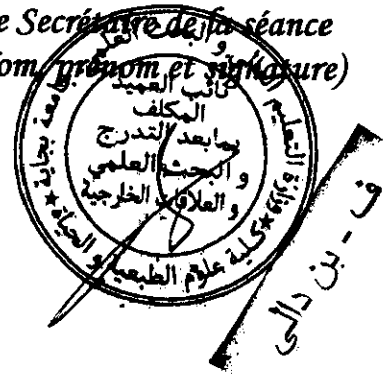 e Secrétaire de la séance
om, prénom et signature)
نائب العميد
المكلف
بمابعد التدرج
و البحث العلمي
و العلاقات الخارجية
كلية علوم الطبيعة و الحياة
ف - بن دالي